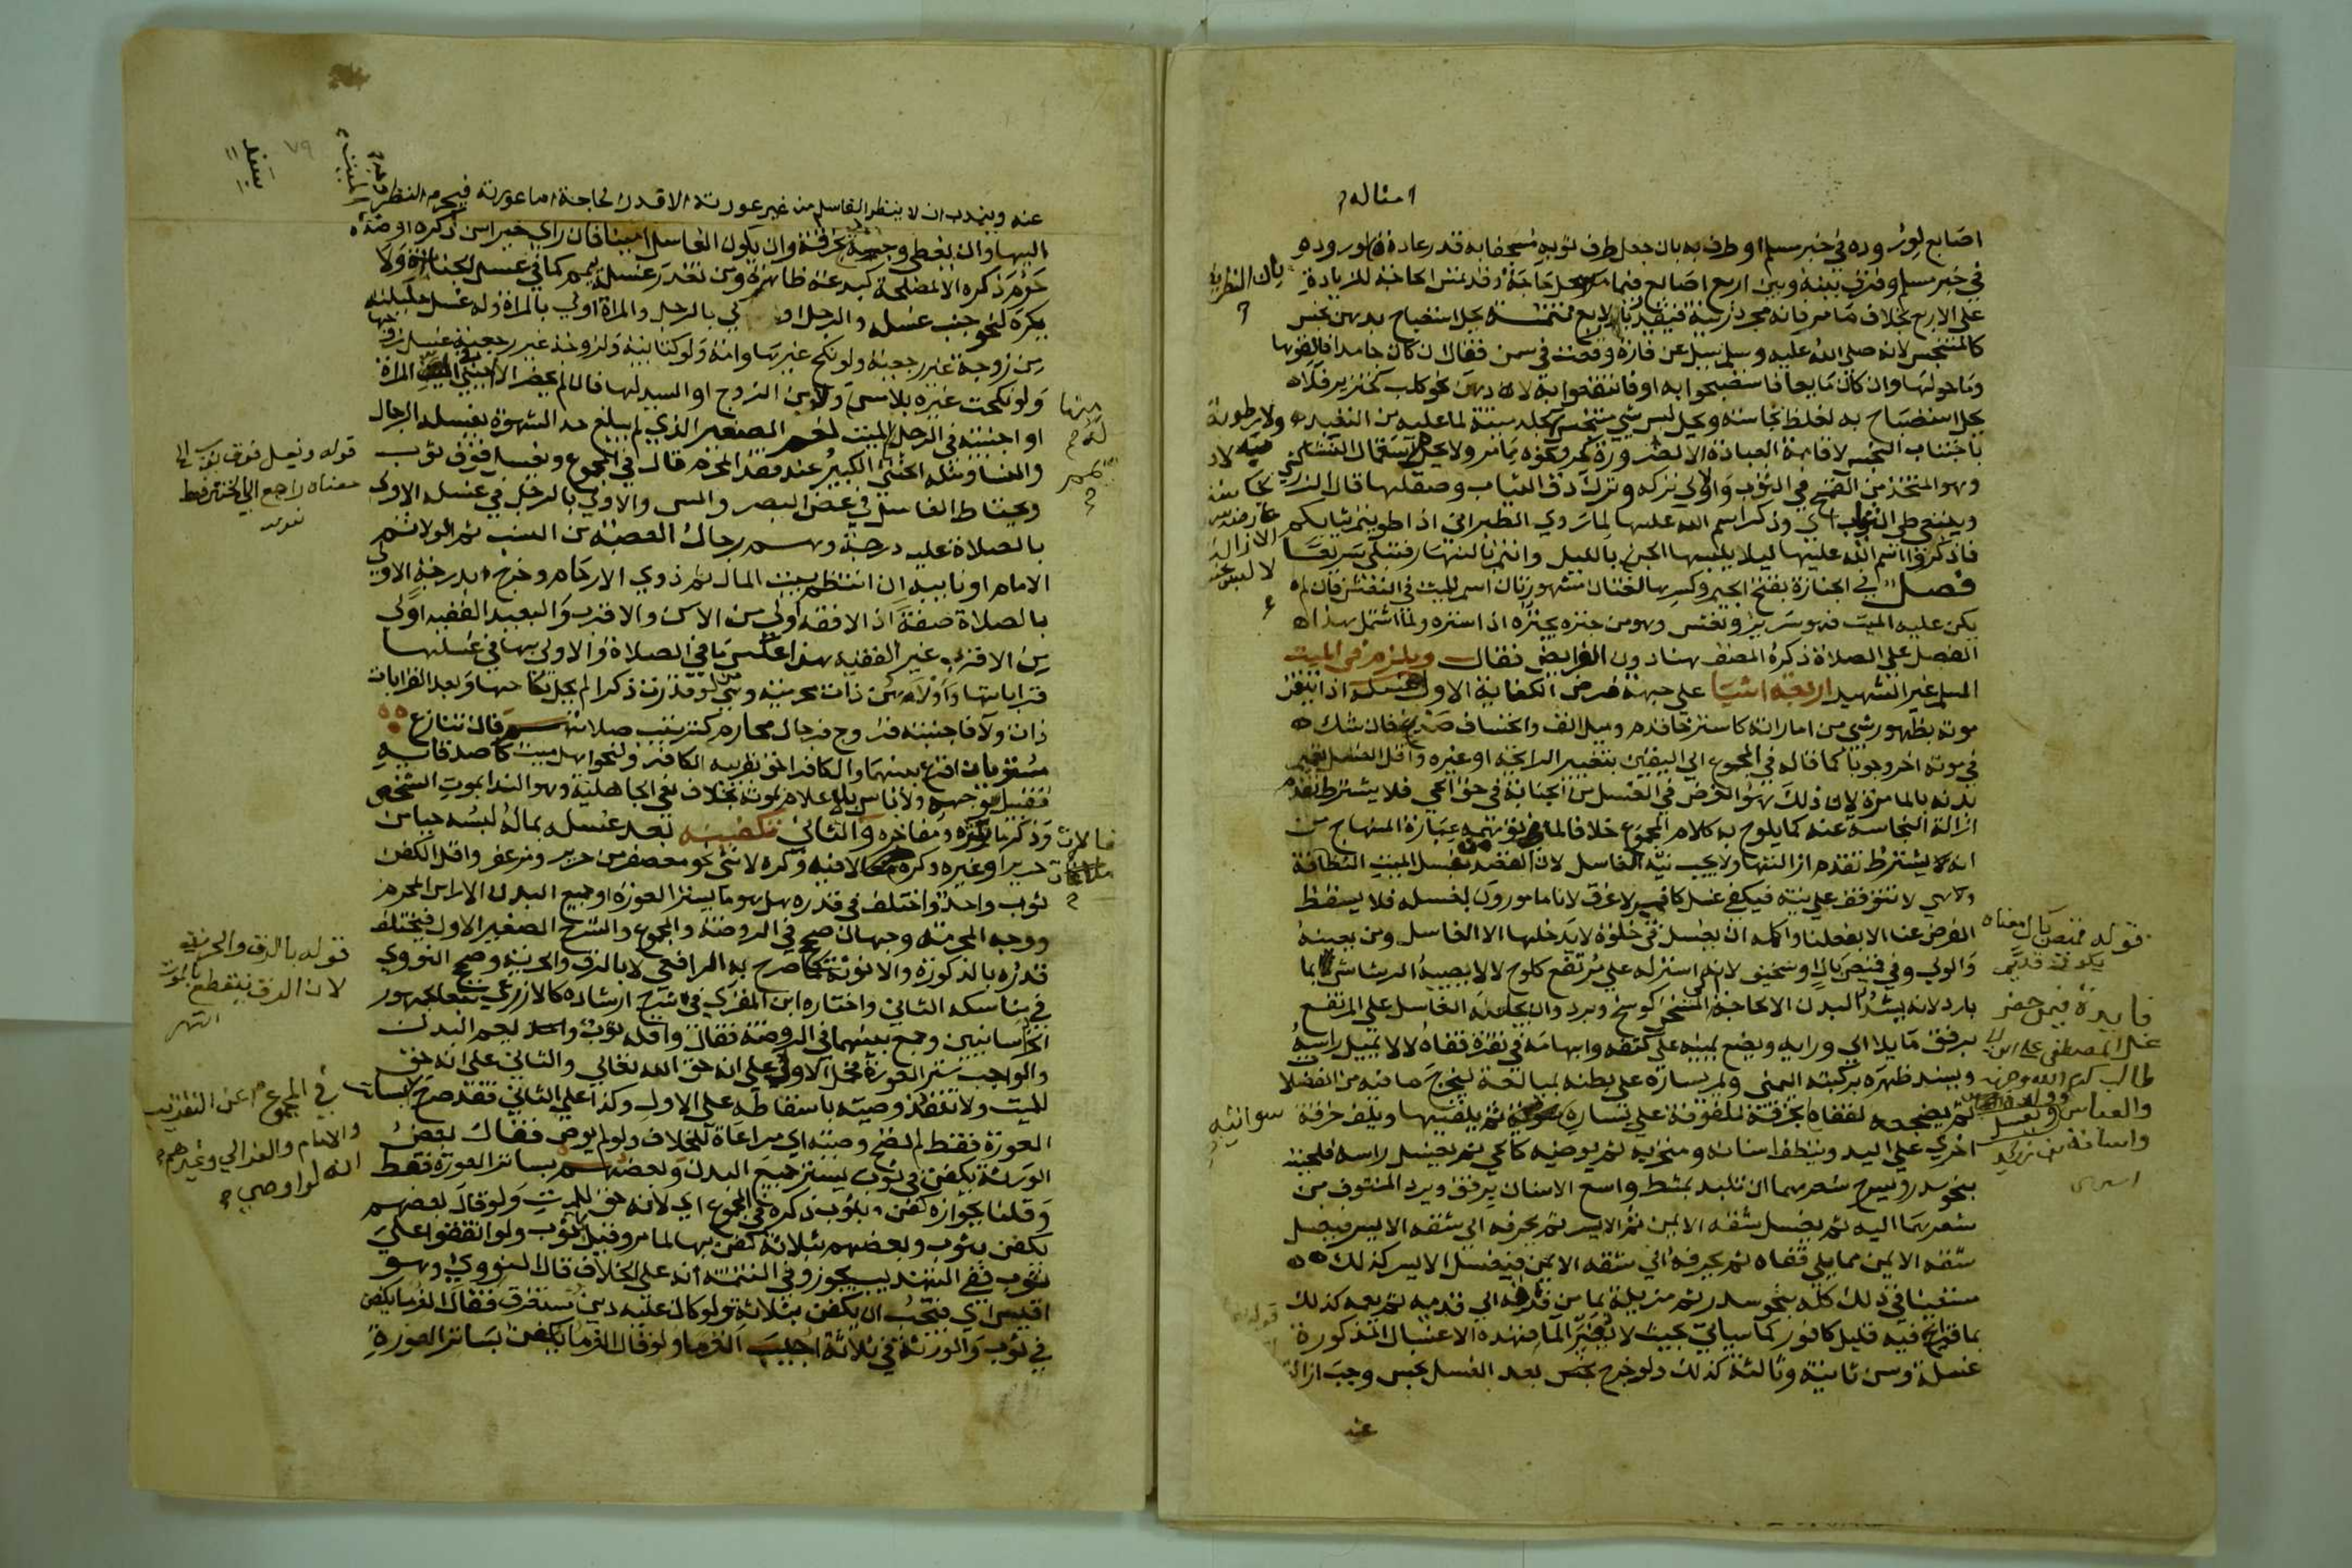 امثاله
اصابع لورؤده في خبر مسلم او طرف به بان جعل طرف ثوبه مسجفا به قدر عادة لوروده
في خبر مسلم وفرق بينه وبين اربع اصابع فيما مر حاجة وقد تمس الحاجة للزيادة
على الاربع بخلاف ما مر فانه مجرد زينة فيتقيد بالاربع تتمة يحل استصباح بدهن نجس
كالمتنجس لانه صلى الله عليه وسلم سيل عن فارة وقعت في سمن فقال ان كان جامدا فالقوها
وما حولها وان كان مايعا فاستصبحوا به او فانتفعوا به لا دهن نحو كلب كخنزير فلا
يحل استصباح به لغلظ نجاسته ويحل لبس شي متنجس كجلد ميتة لما عليه من التعبد
باجتناب النجس لاقامة العبادة الا لضرورة كحر ونحوه مما مر ولا يحل استعمال النشا
وهو المتخذ من القمح في الثوب والاولي تركه وترك دق الثياب وصقلها قال الزركشي
وينبغي طي الثياب اي وذكر اسم الله عليها لما روي الطبراني اذا طويتم ثيابكم
فاذكروا اسم الله عليها ليلا يلبسها الجن بالليل وانتم بالنهار فتبلي سريعا
فصل في الجنازة بفتح الجيم وكسرها لغتان مشهورتان اسم للميت في النعش فان لم
يكن عليه الميت فهو سرير ونعش وهو من جنزه يجنزه اذا ستره ولما اشتمل هذا
الفصل على الصلاة ذكره المصنف هنا دون الفرايض فقال ويلزم في الميت
المسلم غير الشهيد اربعة اشيا على جهة فرض الكفاية الاول غسله اذا تيقن
موته بظهور شي من اماراته كاسترخا قدم وميل انف وانخساف صدغ فان شك
في موته اخر وجوبا كما قاله في المجموع الي اليقين بتغيير الرايحة او غيره واقل الغسل تعميم
بدنه بالما مرة لان ذلك هو الفرض في الغسل من الجنابة في حق الحي فلا يشترط تقدم
ازالة النجاسة عنه كما يلوح به كلام المجموع خلافا لما يوهمه عبارة المنهاج من
انه يشترط تقدم ازالتها ولا يجب نية الغاسل لان القصد بغسل الميت النظافة
وهي لا تتوقف على نية فيكفي غسل كافر لا غرق لانا مامورون بغسله فلا يسقط
الفرض عنا الا بفعلنا واكمله ان يغسل في خلوة لا يدخلها الا الغاسل ومن يعينه
والولي وفي قميص بال او سخيف لانه استر له على مرتفع كلوح ليلا يصيبه الرشاش بما
بارد لانه يشد البدن الا لحاجة المسخن كوسخ وبرد وان يجلسه الغاسل على المرتفع
برفق مايلا الي ورايه ويضع يمينه على كتفه وابهامه في نقرة قفاه ليلا يميل راسه
ويسند ظهره بركبته اليمني ويمر يساره على بطنه بمبالغة ليخرج ما فيه من الفضلا
ثم يضجعه لقفاه ويغسل بخرقة ملفوفة على يساره سوأتيه ثم يلقيها ويلف خرقة
اخري على اليد وينظف اسنانه ومنخريه ثم يوضيه كالحي ثم يغسل راسه فلحيته
بنحو سدر ويسرح شعرهما ان تلبد بمشط واسع الاسنان برفق ويرد المنتوف من
شعرهما اليه ثم يغسل شقه الايمن ثم الايسر ثم يحرفه الي شقه الايسر فيغسل
شقه الايمن مما يلي قفاه ثم يحرفه الي شقه الايمن فيغسل الايسر كذلك
مستعينا في ذلك كله بنحو سدر ثم مزيله بما من فرقه الي قدمه ثم يعمه كذلك
بما قراح فيه قليل كافور كما سياتي بحيث لا يغير الما فهذه الاغسال المذكورة
غسلة وسن ثانية وثالثة كذلك ولو خرج نجس بعد الغسل نجس وجب ازالته
عنه
قوله قميص بال معناه
يكون قديم
فايدة فيمن حضر
غسل المصطفى علي ابن ابي
طالب كرم الله وجهه
والعباس
واسامة بن زيد
٧٩
عنه ويندب ان لا ينظر الغاسل من غير عورته الا قدر الحاجة اما عورته فيحرم النظر
اليها وان يغطي وجهه بخرقة وان يكون الغاسل امينا فان راي خيرا سن ذكره او ضده
حرم ذكره الا لمصلحة كبدعة ظاهرة ومن تعذر غسله يمم كما في غسل الجنابة ولا
يكره لنحو جنب غسله والرجل اولي بالرجل والمراة اولي بالمراة وله غسل حليلته
من زوجة غير رجعية ولو نكح غيرها وامة ولو كتابية ولزوجة غير رجعية غسل زوجها
ولو نكحت غيره بلا مس من الزوج او السيد لها فان لم يحضر الا اجنبي في الميت المراة
او اجنبية في الرجل الميت نعم الصغير الذي لم يبلغ حد الشهوة يغسله الرجال
والنسا ومثله الخنثي الكبير عند فقد المحرم قال في المجموع ويغسل فوق ثوب
ويحتاط الغاسل في غض البصر والمس والاولي بالرجل في غسله الاولي
بالصلاة عليه درجة وهم رجال العصبة من النسب ثم الولا ثم
الامام او نايبه ان انتظم بيت المال ثم ذوي الارحام وخرج بدرجة الاولي
بالصلاة صفة اذ الافقه اولي من الاسن والاقرب والبعيد الفقيه اولي
من الاقرب غير الفقيه هنا عكس ما في الصلاة والاولي بها في غسلها
قراباتها واولاهن ذات محرمية وهي لو قدرت ذكرا لم يحل نكاحها وبعد القرابات
ذات ولا فاجنبية فزوج فرجال محارم كترتيب صلاتهم فان تنازع
مستويان اقرع بينهما والكافر احق بقريبه الكافر ولنحو اهل ميت كاصدقايه
تقبيل وجهه ولا باس بالاعلام بموته بخلاف نعي الجاهلية وهو الندا بموت الشخص
وذكر ماثره ومفاخره والثاني تكفينه بعد غسله بما له لبسه حيا من
حرير او غيره وكره مغالاة فيه وكره لانثي نحو معصفر من حرير ومزعفر واقل الكفن
ثوب واحد واختلف في قدره هل هو ما يستر العورة او جميع البدن الا راس المحرم
ووجه المحرمة وجهان صحح في الروضة والمجموع والشرح الصغير الاول فيختلف
قدره بالذكورة والانوثة كما صرح به الرافعي لا بالرق والحرية وصحح النووي
في مناسكه الثاني واختاره ابن المقري في شرح ارشاده كالاذرعي تبعا لجمهور
الخراسانيين وجمع بينهما في الروضة فقال واقله ثوب واحد يعم البدن
والواجب ستر العورة فحمل الاول على انه حق الله تعالي والثاني على انه حق
للميت ولا تنفذ وصيته باسقاطه على الاول وكذا على الثاني فقد صرح
العورة فقط لم تصح وصيته اي مراعاة للخلاف ولو لم يوص فقال بعض
الورثة يكفن في ثوب يستر جميع البدن وبعضهم بساتر العورة فقط
وقلنا بجوازه كفن بثوب ذكره في المجموع اي لانه حق للميت ولو قال بعضهم
يكفن بثوب وبعضهم بثلاثة كفن بها لما مر وقيل بثوب ولو اتفقوا على
ثوب ففي التهذيب يجوز وفي التتمة انه على الخلاف قال النووي وهو
اقيس اي فيجب ان يكفن بثلاثة ولو كان عليه دين مستغرق فقال الغرما يكفن
في ثوب والورثة في ثلاثة اجيب الغرما ولو قال الغرما يكفن بساتر العورة
قوله ويغسل فوق ثوب الي
معناه راجع الي الخنثي فقط
قوله بالرق والحرية
لان الرق ينقطع بالموت
انتهي
في المجموع عن التقريب
والامام والغزالي وغيرهم
انه لو اوصي بساتر